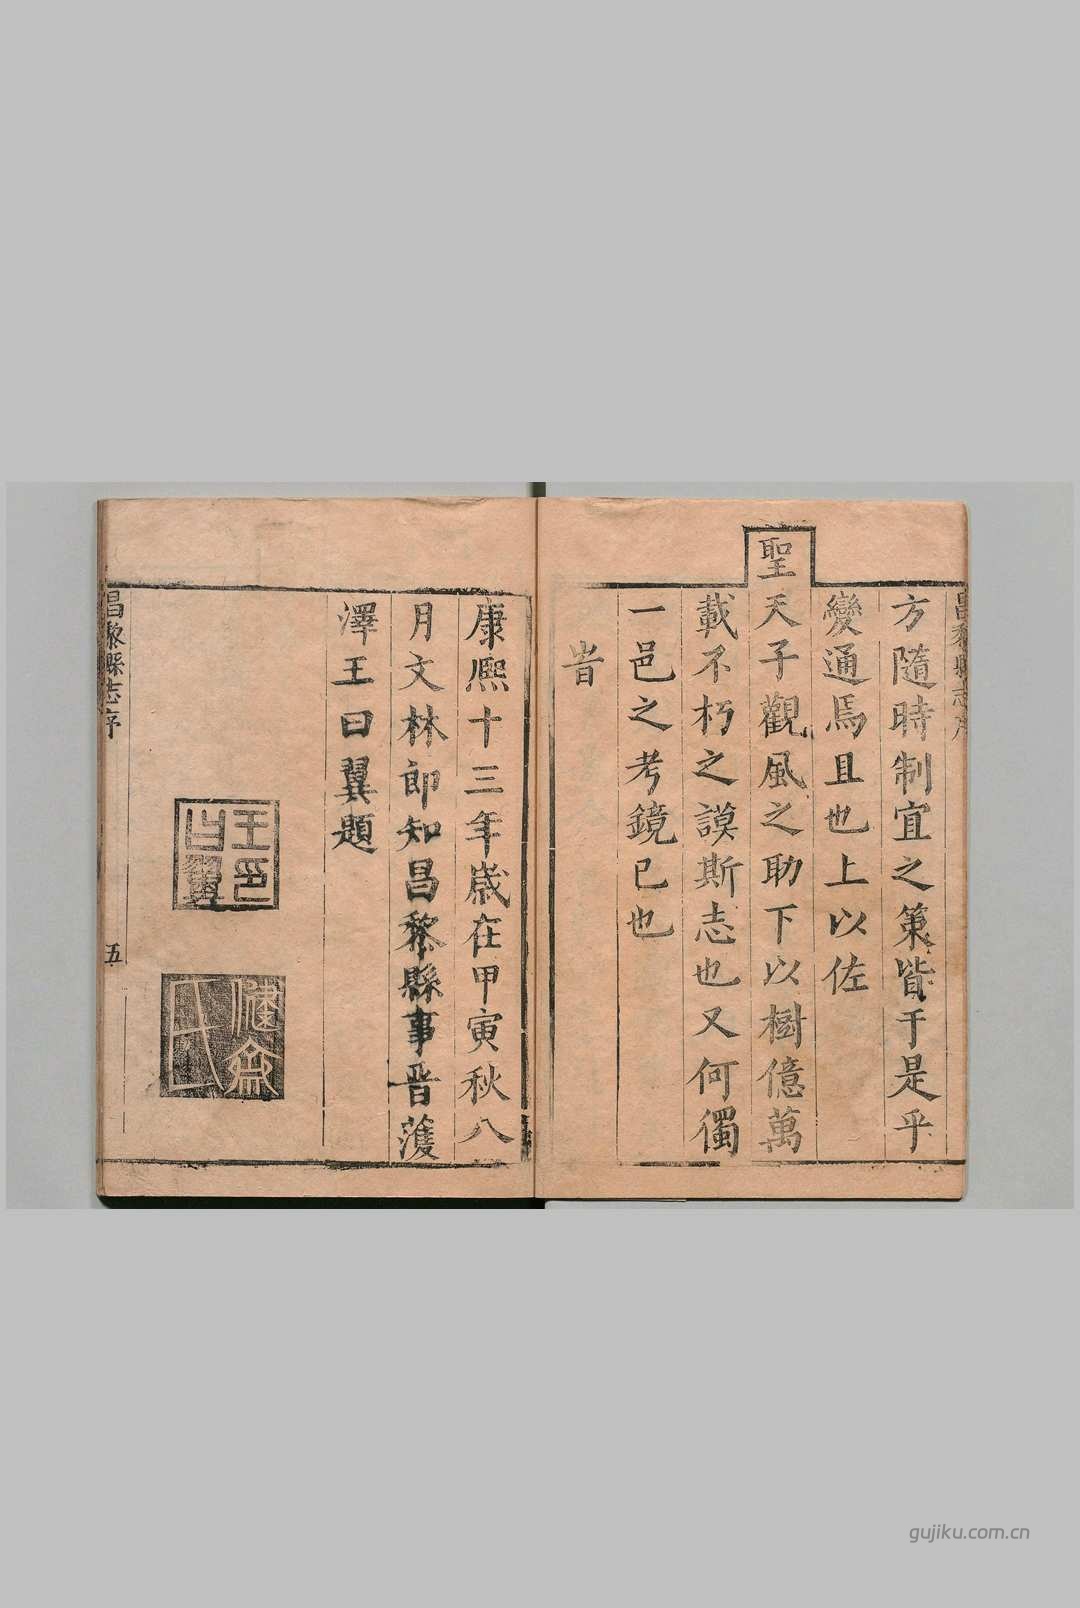 昌黎縣志序
方隨時制宜之策皆于是乎
變通焉且也上以佐
聖天子觀風之助下以樹億萬
載不朽之謨斯志也又何獨
一邑之考鏡已也
旹
康熙十三年歲在甲寅秋八
月文林郎知昌黎縣事晉濩
澤王曰翼題
王曰翼印
昌黎縣志序
五
gujiku.com.cn